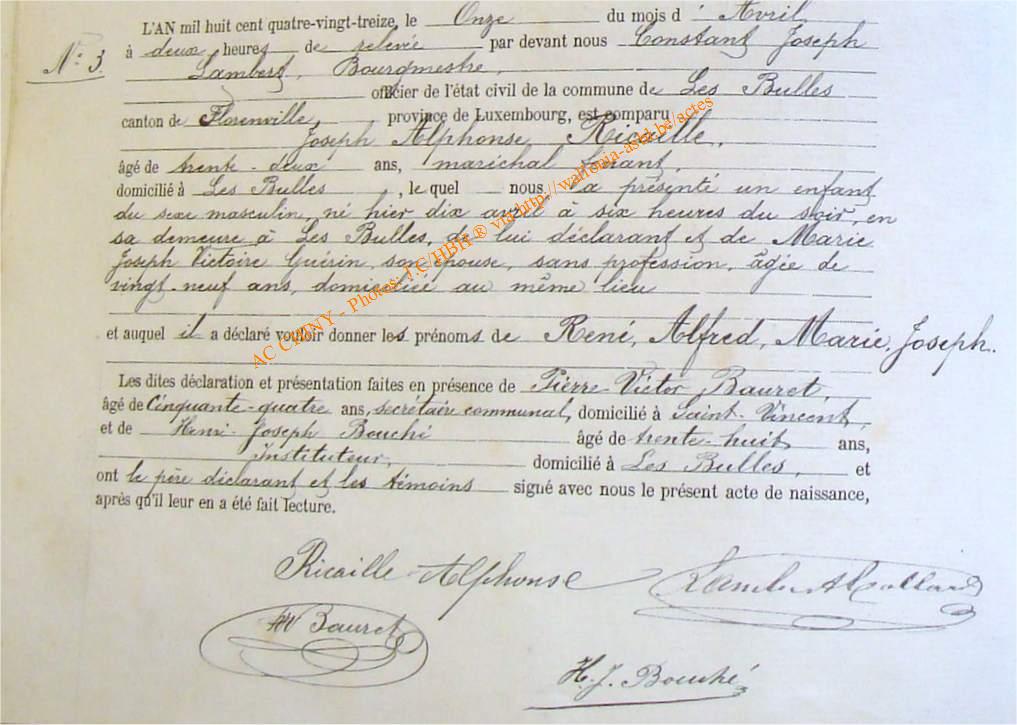 L'AN mil huit cent quatre-vingt-treize, le Onze du mois d' Avril
à deux heures de relevée par devant nous Constant Joseph
N° 3.
Lambert, Bourgmestre,
officier de l'état civil de la commune de Les Bulles
canton de Florenville, province de Luxembourg, est comparu
Joseph Alphonse Ricaille,
âgé de trente-deux ans, maréchal ferrant,
domicilié à Les Bulles, le quel nous a présenté un enfant
du sexe masculin, né hier dix avril à six heures du soir, en
sa demeure à Les Bulles, de lui déclarant et de Marie
Joseph Victoire Guérin, son épouse, sans profession, âgée de
vingt-neuf ans, domiciliée au même lieu
et auquel il a déclaré vouloir donner les prénoms de René, Alfred, Marie, Joseph.
Les dites déclaration et présentation faites en présence de Pierre-Victor Bauret,
âgé de Cinquante-quatre ans, secrétaire communal, domicilié à Saint-Vincent,
et de Henri-Joseph Bouché âgé de trente-huit ans,
Instituteur, domicilié à Les Bulles, et
ont le père déclarant et les témoins signé avec nous le présent acte de naissance,
après qu'il leur en a été fait lecture.
Ricaille Alphonse
Lambert Collard
Bauret
H. J. Bouché
AC CHINY - Photos: J.C/HBH ® via http://wallonia-asbl.be/actes